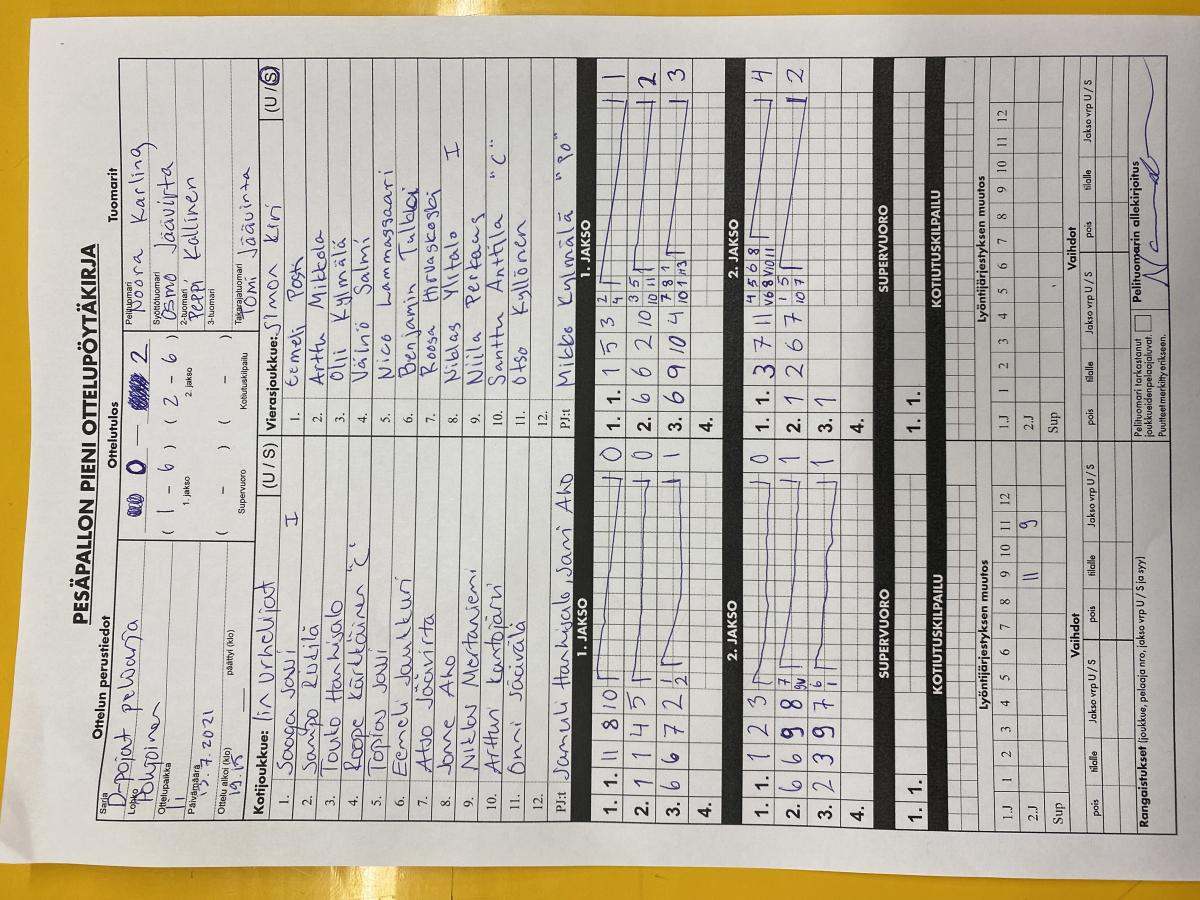 PESÄPALLON PIENI OTTELUPÖYTÄKIRJA
Ottelun perustiedot
Ottelutulos
Tuomarit
Sarja
D-pojat pelisarja
Lohko
Pohjoinen
Ottelupaikka
Ii
Päivämäärä
13.7.2021
Ottelu alkoi (klo)
päättyi (klo)
0 — 2
( 1 - 6 ) ( 2 - 6 )
1. jakso
2. jakso
( - ) ( - )
Supervuoro
Kotiutuskilpailu
Pelituomari
Noora Karling
Syöttötuomari
Osmo Jäävirta
2-tuomari
Peppi Kallinen
3-tuomari
Takarajatuomari
Tomi Jäävirta
Kotijoukkue: Iin Urheilijat (U / S)
1. Saaga Javi I
2. Sampo Ruikilä
3. Touko Hanhisalo
4. Roope Kärkkäinen "C"
5. Topias Javi
6. Eemeli Laukkuri
7. Atso Jäävirta
8. Jonne Aho
9. Niklas Mertaniemi
10. Artturi Kantojärvi
11. Onni Jäävälä
12.
PJ:t Samuli Hanhisalo, Jani Aho
Vierasjoukkue: Simon Kiri (U / S)
1. Eemeli Posti
2. Arttu Mikkola
3. Olli Kylmälä
4. Väinö Salmi
5. Nico Lammassaari
6. Benjamin Tulkki
7. Roosa Hirvaskoski
8. Niklas Ylitalo I
9. Niila Pertaus
10. Santtu Anttila "C"
11. Otso Kyllönen
12.
PJ:t Mikko Kylmälä "PO"
1. JAKSO
1. JAKSO
1. 1. 11 8 10 0
2. 1 1 4 5 0
3. 6 6 7 2 1 2 1
4.
1. 1. 1 5 3 2 4 1
2. 6 6 2 10 3 5 10 11 2
3. 6 9 10 4 7 8 1 10 11 3 3
4.
2. JAKSO
2. JAKSO
1. 1. 1 2 3 0
2. 6 6 9 8 7 1
3. 2 3 9 7 6 1 1
4.
1. 1. 3 7 11 4 5 6 8 4
2. 1 2 6 7 1 5 10 7 2
3. 1
4.
SUPERVUORO
SUPERVUORO
1. 1.
1. 1.
KOTIUTUSKILPAILU
KOTIUTUSKILPAILU
Lyöntijärjestyksen muutos
Lyöntijärjestyksen muutos
1.J 1 2 3 4 5 6 7 8 9 10 11 12
2.J 11 9
Sup
1.J 1 2 3 4 5 6 7 8 9 10 11 12
2.J
Sup
Vaihdot
Vaihdot
pois tilalle Jakso vrp U / S pois tilalle Jakso vrp U / S
pois tilalle Jakso vrp U / S pois tilalle Jakso vrp U / S
Rangaistukset (joukkue, pelaaja nro, jakso vrp U / S ja syy)
Pelituomari tarkastanut
joukkueidenpelaajaluvat.
Puutteet merkitty erikseen.
Pelituomarin allekirjoitus